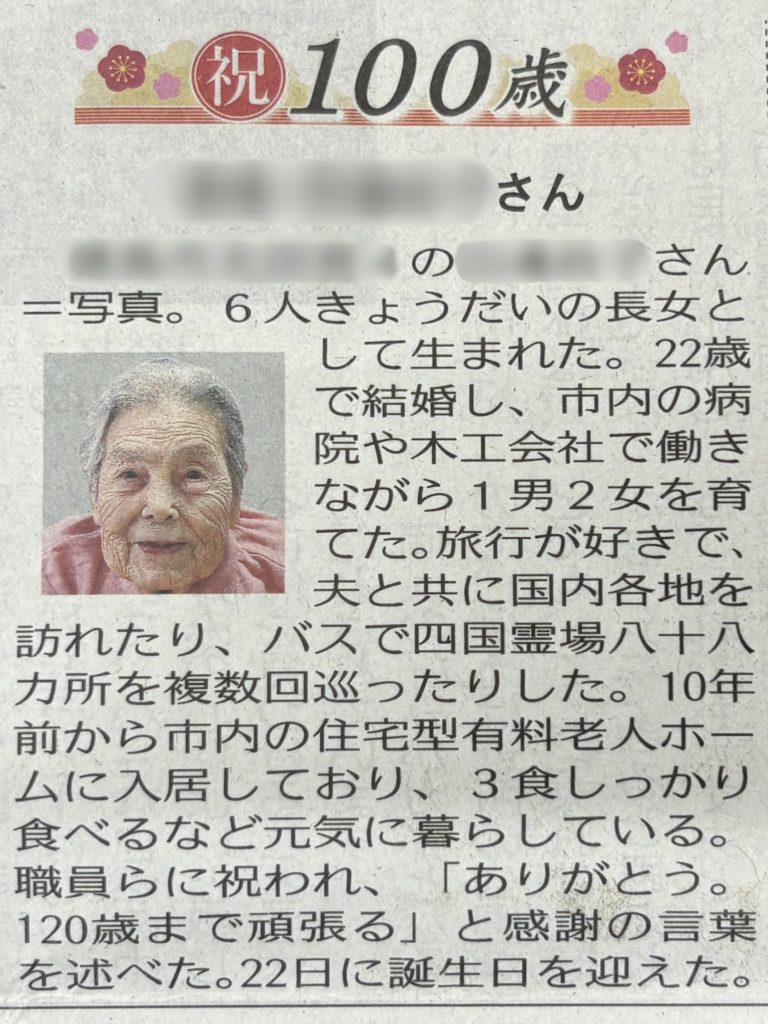 祝100歳
さん
のさん
＝写真。６人きょうだいの長女と
して生まれた。22歳
で結婚し、市内の病
院や木工会社で働き
ながら１男２女を育
てた。旅行が好きで、
夫と共に国内各地を
訪れたり、バスで四国霊場八十八
カ所を複数回巡ったりした。10年
前から市内の住宅型有料老人ホー
ムに入居しており、３食しっかり
食べるなど元気に暮らしている。
職員らに祝われ、「ありがとう。
120歳まで頑張る」と感謝の言葉
を述べた。22日に誕生日を迎えた。